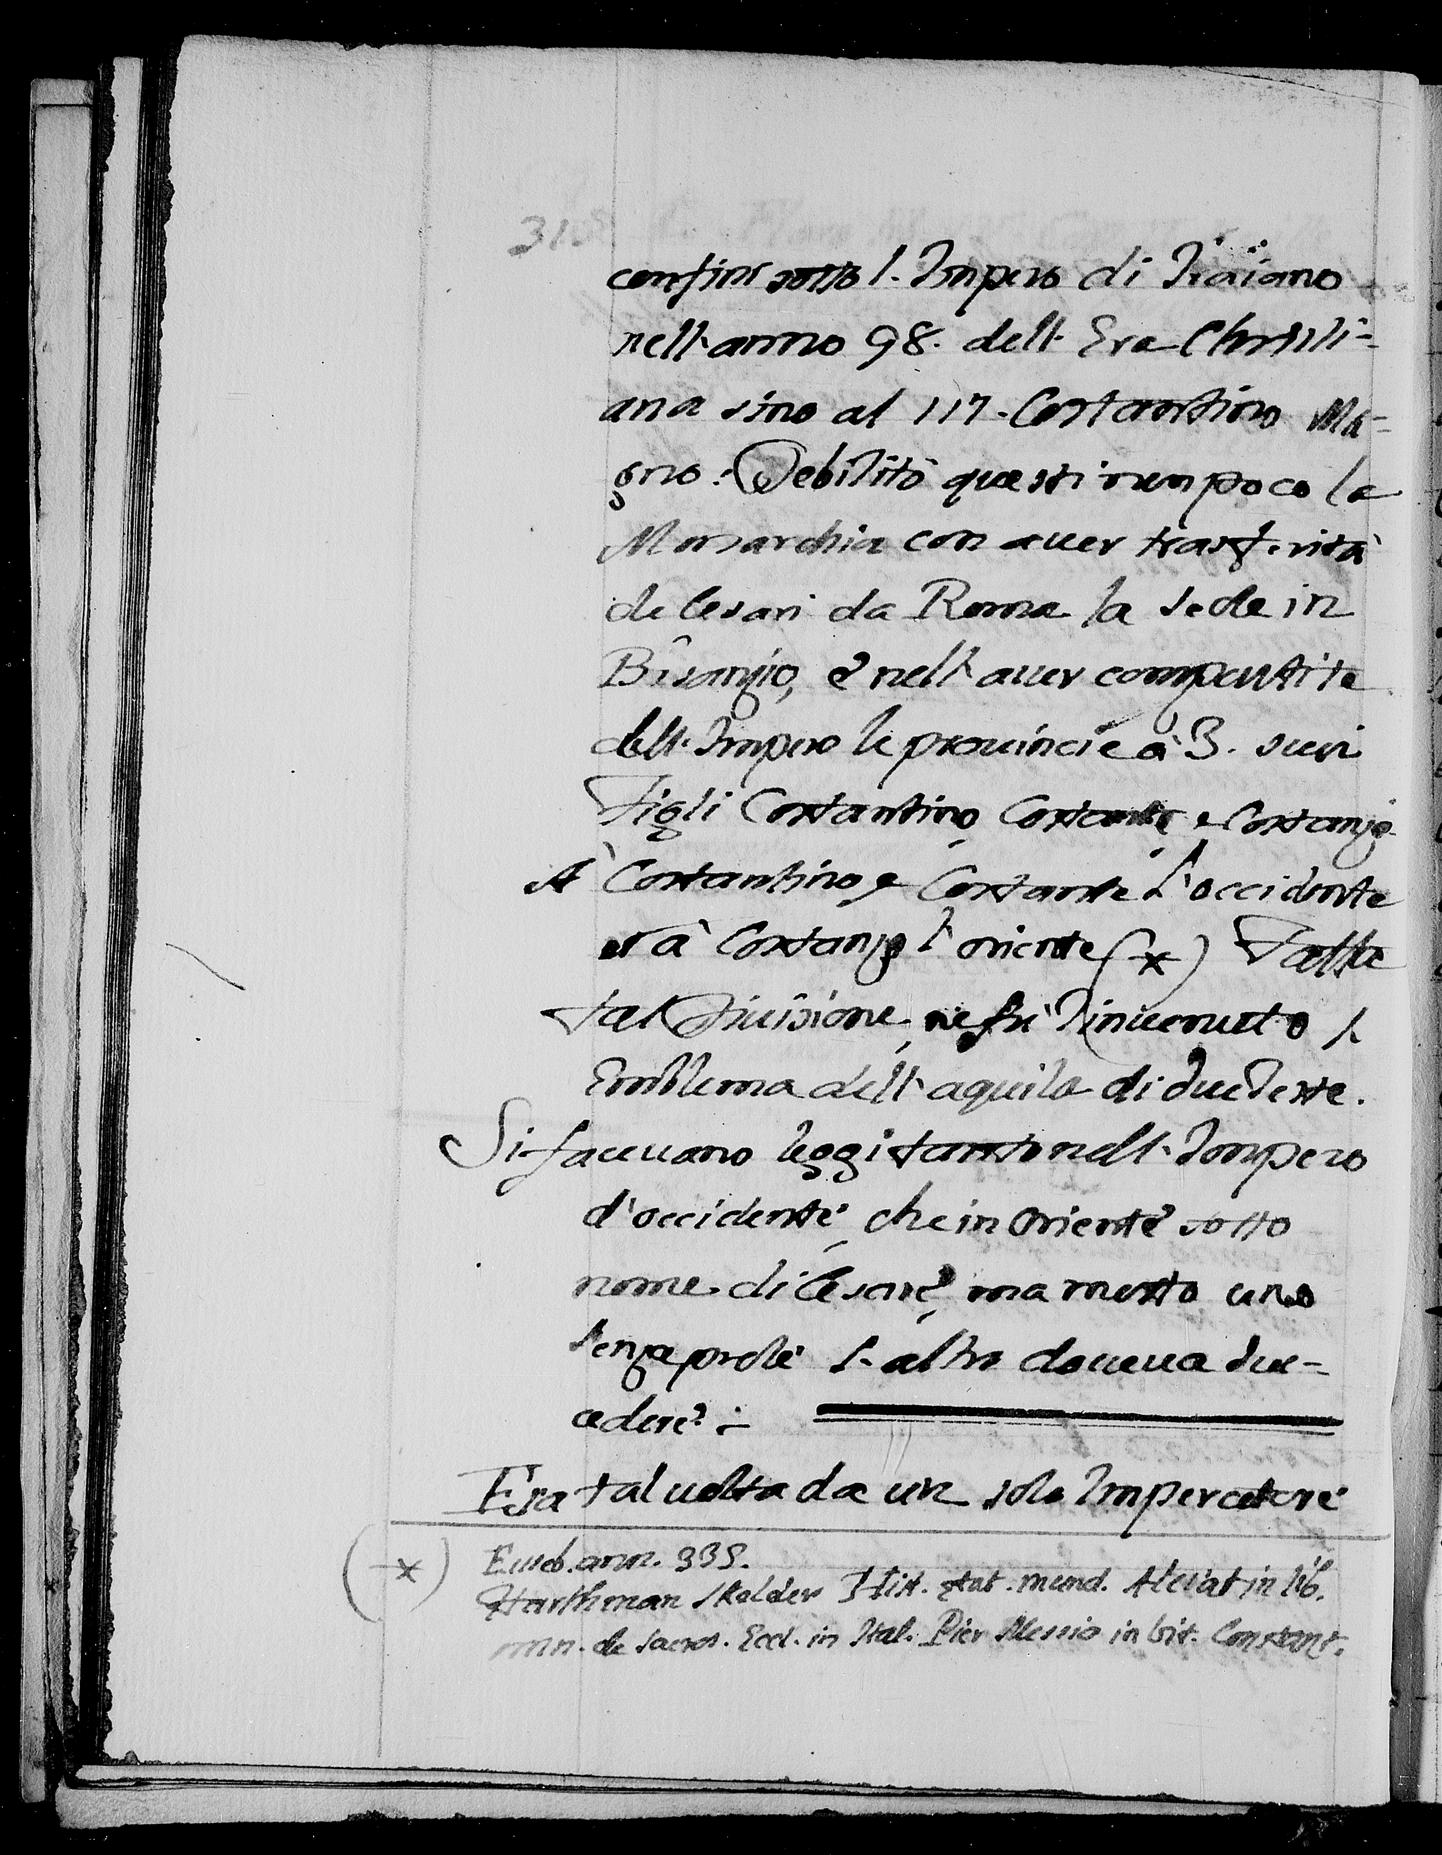 310
confini sotto l'Impero di Traiano
nell'anno 98. dell'Era Christi=
ana sino al 117. Costantino Ma=
gno: Debilitò questi non poco la
Monarchia con auer trasferita
de Cesari da Roma la sede in
Bisanzio, e nell'auer compartite
dell'Impero le prouincie à 3. suoi
Figli Costantino, Costante, e Costanzo
A Costantino, e Costante l'occidente
et à Costanzo l'oriente (x) Fatta
tal Diuisione, ne fù l'inuenuto l'
Emblema dell'aquila di due Teste.
Si faceuano leggi tanto nell'Impero
d'occidente, che in Oriente sotto
nome di Cesare, ma morto uno
senza prole l'altro doueua suc=
cedere. :-
Era tal uolta da un solo Imperatore
(x) Euseb. ann. 335.
Harthman Skelder Hist. ętat. mund. Alciat in lib.
de Sacros. Eccl. in Ital. Pier Messio in Vit. Constant.